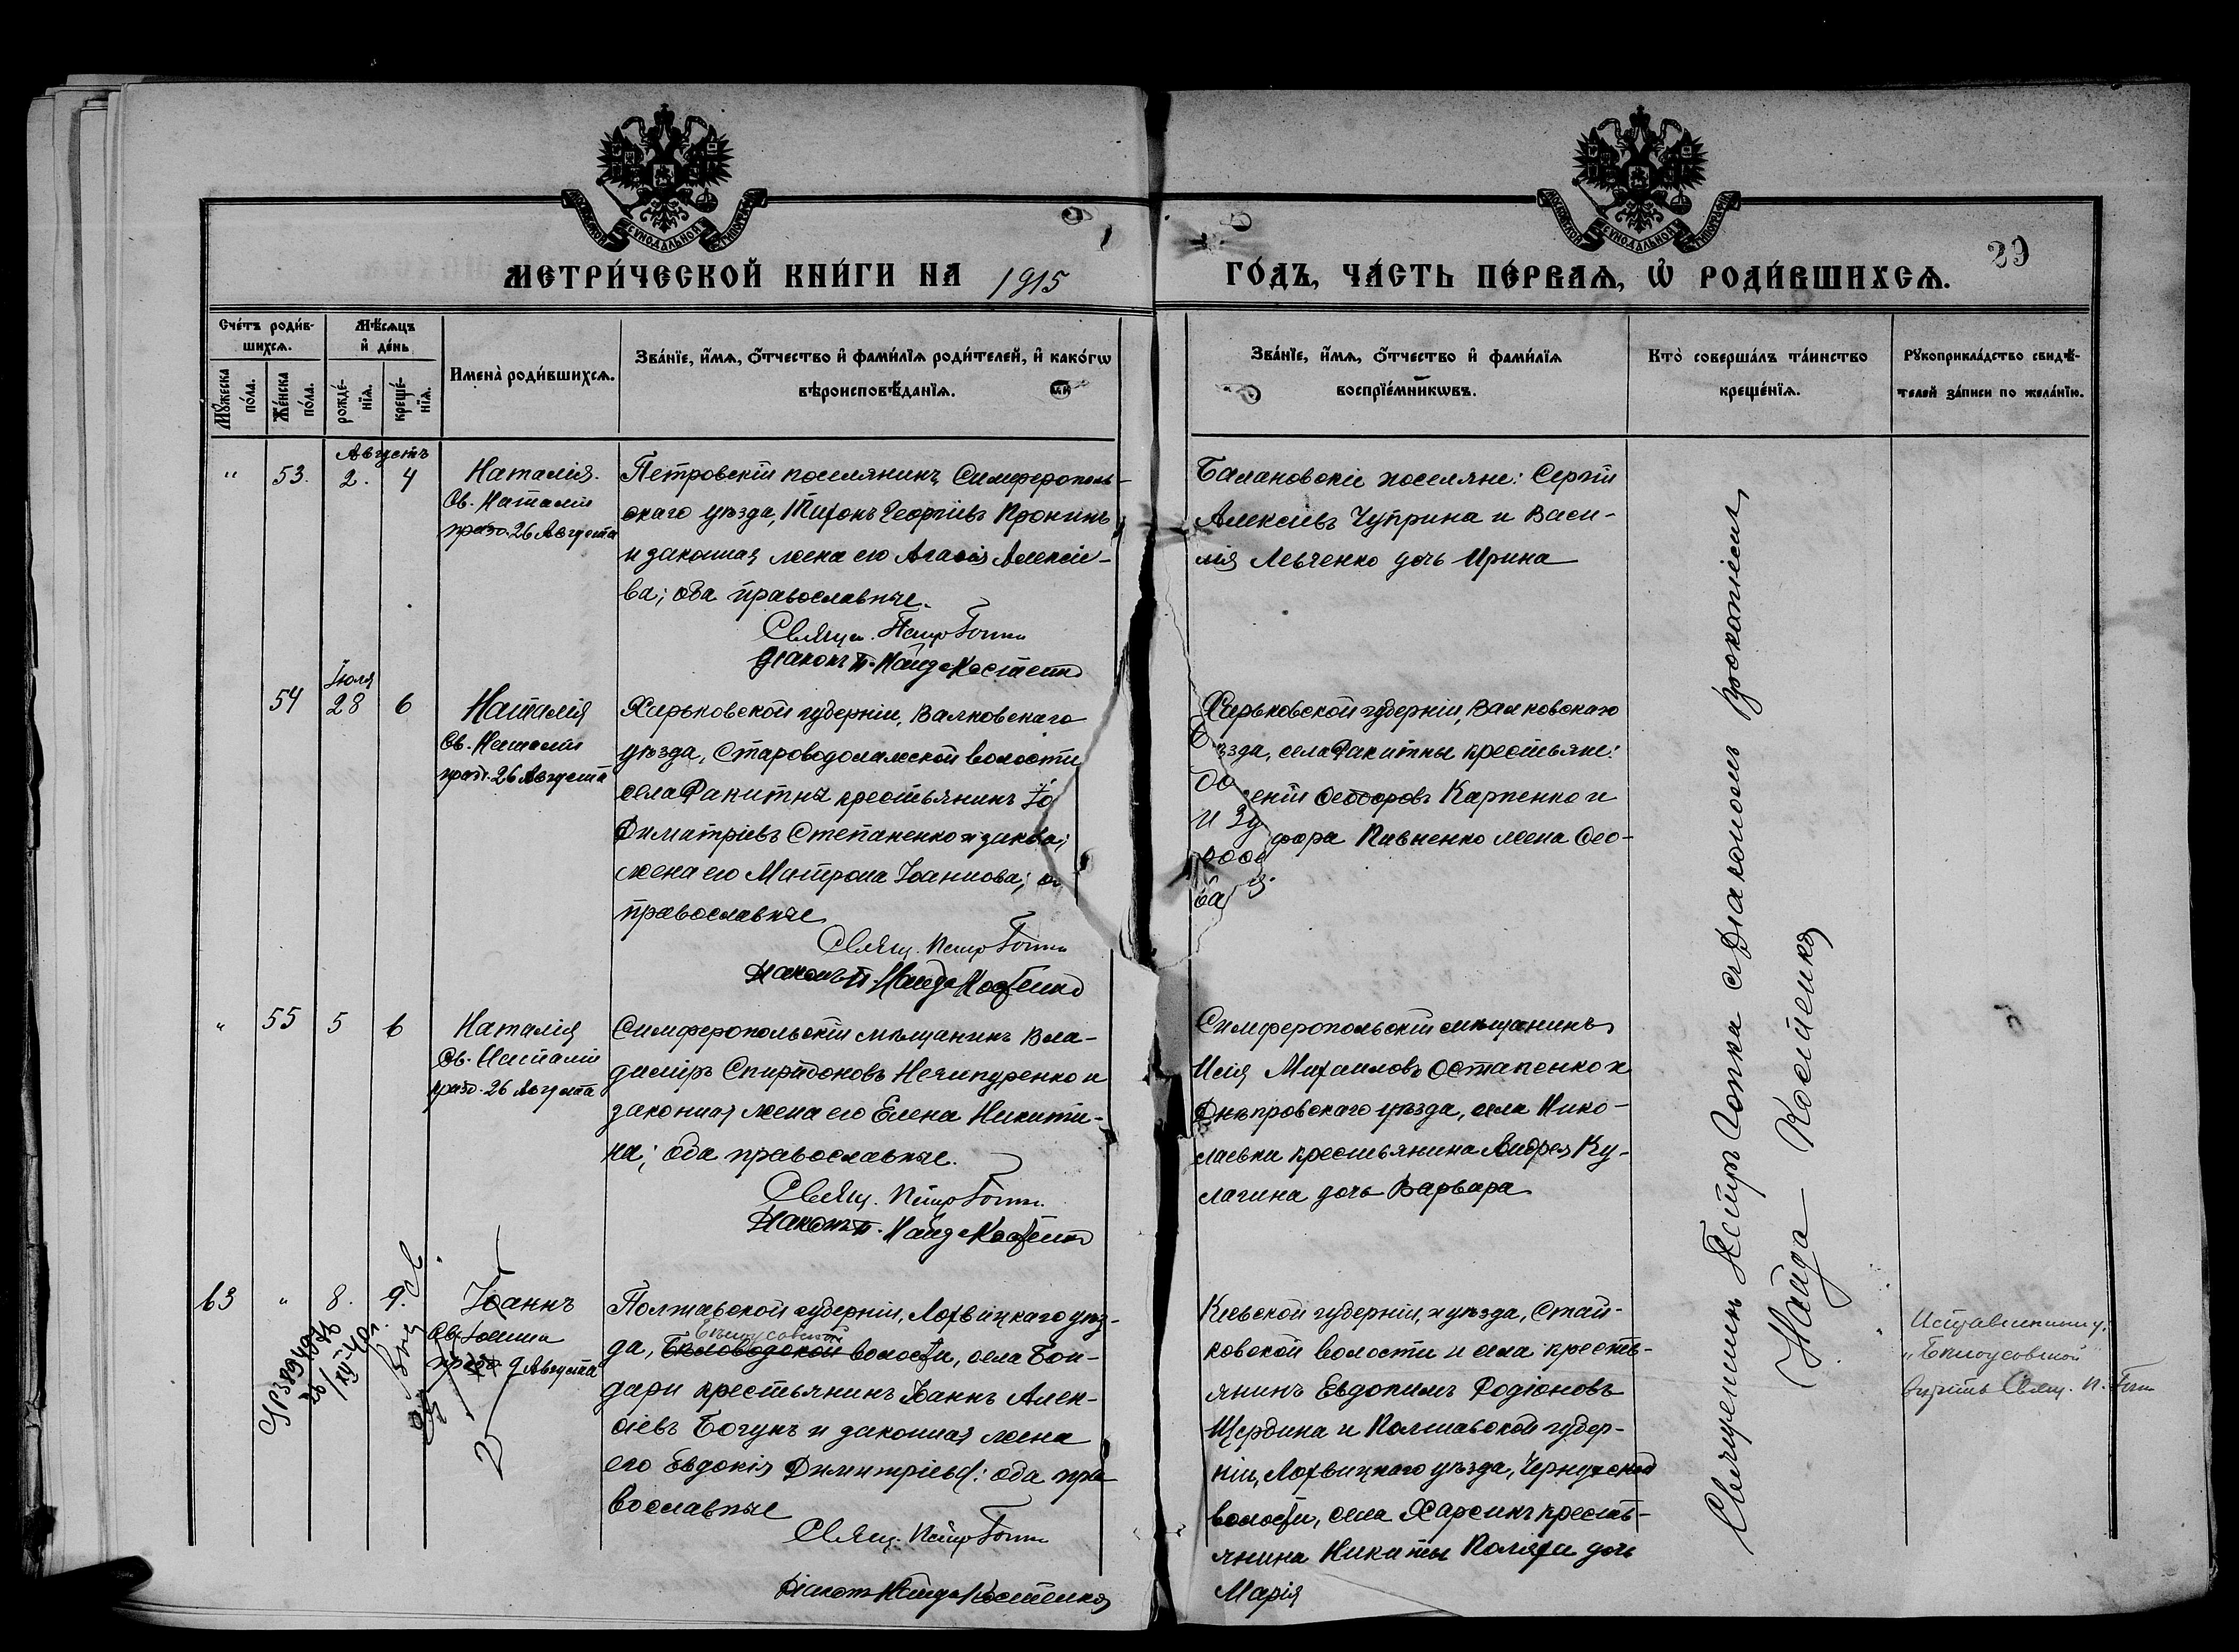 МЕТРИ́ЧЕСКОЙ КНИ́ГИ НА 1915
ГО́ДЪ, ЧА́СТЬ ПЕ́РВАѦ, Ѡ РОДИ́ВШИХСѦ.
29
Сче́тъ роди́в-
шихсѧ.
Мѣ́сѧцъ
и́ де́нь
Мꙋ́жеска
по́ла.
Же́нска
по́ла.
рожде́-
нїѧ.
креще́-
нїѧ.
Имена̀ роди́вшихсѧ.
Зва́нїе, и́мѧ, ѻ́тчество и́ фами́лїѧ роди́телей, и́ како́гѡ
вѣроисповѣ́данїѧ.
Зва́нїе, и́мѧ, ѻ́тчество и́ фами́лїѧ
воспрїе́мникѡвъ.
Кто̀ соверша́лъ та́инство
креще́нїѧ.
Рꙋкоприкла́дство свидѣ́-
телей за́писи по жела́нїю.
Августъ
" 53. 2. 4
Наталія.
Св. Наталіи
празд. 26 Августа
Петровскій поселянинъ Симферополь-
скаго уѣзда, Тихонъ Георгіевъ Пронинъ
и законная жена его Агаѳія Алексіе-
ва; оба православные.
Свящ. Петръ Гопка
Діаконъ П. Найда Костенко
Балановскіе поселяне: Сергій
Алексіевъ Чуприна и Васи-
лія Левченко дочь Ирина
Іюля
54 28 6
Наталія
Св. Наталіи
празд. 26 Августа
Харьковской губерніи, Валковскаго
уѣзда, Староводолажской волости
села Ракитны крестьянинъ
Димитріевъ Степаненко и
жена его Матрона Іоаннова;
православные
Свящ. Петръ Гопка
Діаконъ П. Найда Костенко
Харьковской губерніи, Валковскаго
уѣзда, села Ракитны крестьяне:
Ѳеодоровъ Карпенко и
Пивненко жена Ѳео-
" 55 5 6
Наталія
Св. Наталіи
празд. 26 Августа
Симферопольскій мѣщанинъ Вла-
диміръ Спиридоновъ Нечипуренко и
законная жена его Елена Никити-
на; оба православные.
Свящ. Петръ Гопка
Діаконъ П. Найда Костенко
Симферопольскій мѣщанинъ
Илія Михаиловъ Остапенко и
Днѣпровскаго уѣзда, села Нико-
лаевки крестьянина Андрея Ку-
лагина дочь Варвара
63 " 8. 9.
Іоаннъ
Св. Іоанна
празд. 9 Августа
Полтавской губерніи, Лохвицкаго уѣз-
Бѣлоусовской
да, Бѣловодской волости, села Бон-
дари крестьянинъ Іоаннъ Алек-
сіевъ Богунъ и законная жена
его Евдокія Димитріева: оба пра-
вославные
Свящ. Петръ Гопка
Діаконъ Найда Костенко
Кіевской губерніи, и уѣзда, Стай-
ковской волости и села кресть-
янинъ Евдокимъ Родіоновъ
Щербина и Полтавской губер-
ніи, Лохвицкаго уѣзда, Чернухской
волости, села Харсикъ кресть-
янина Никиты Поляха дочь
Марія
Священникъ Петръ Гопка съ Діакономъ Прокопіемъ
Найда Костенко
"Бѣлоусовской"
Свящ. П. Гопка